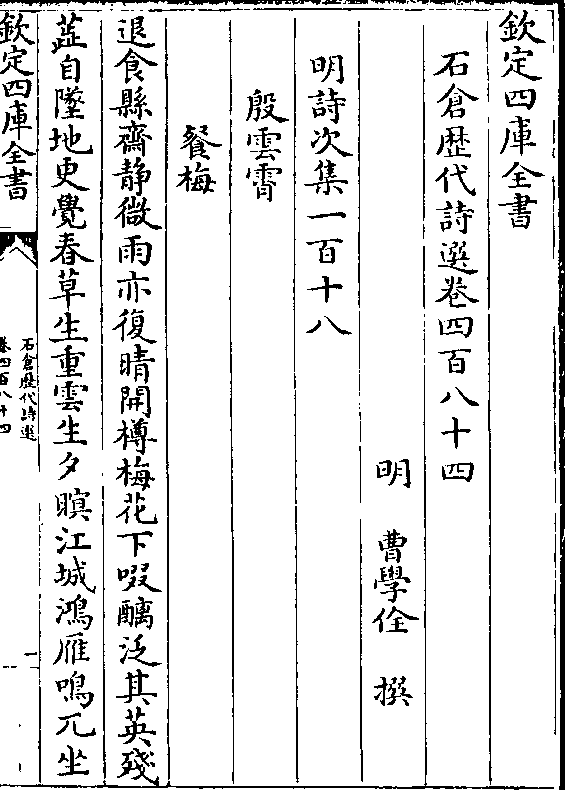 欽定四庫全書
石倉歴代詩選卷四百八十四
明 曹學佺 撰
明詩次集一百十八
殷雲霄
餐梅
退食縣齋静微雨亦復晴開樽梅花下啜醨泛其英殘
蕋自墜地更覺春草生重雲生夕暝江城鴻雁鳴兀坐
欽定四庫全書
石倉歴代詩選
卷四百八十四
一